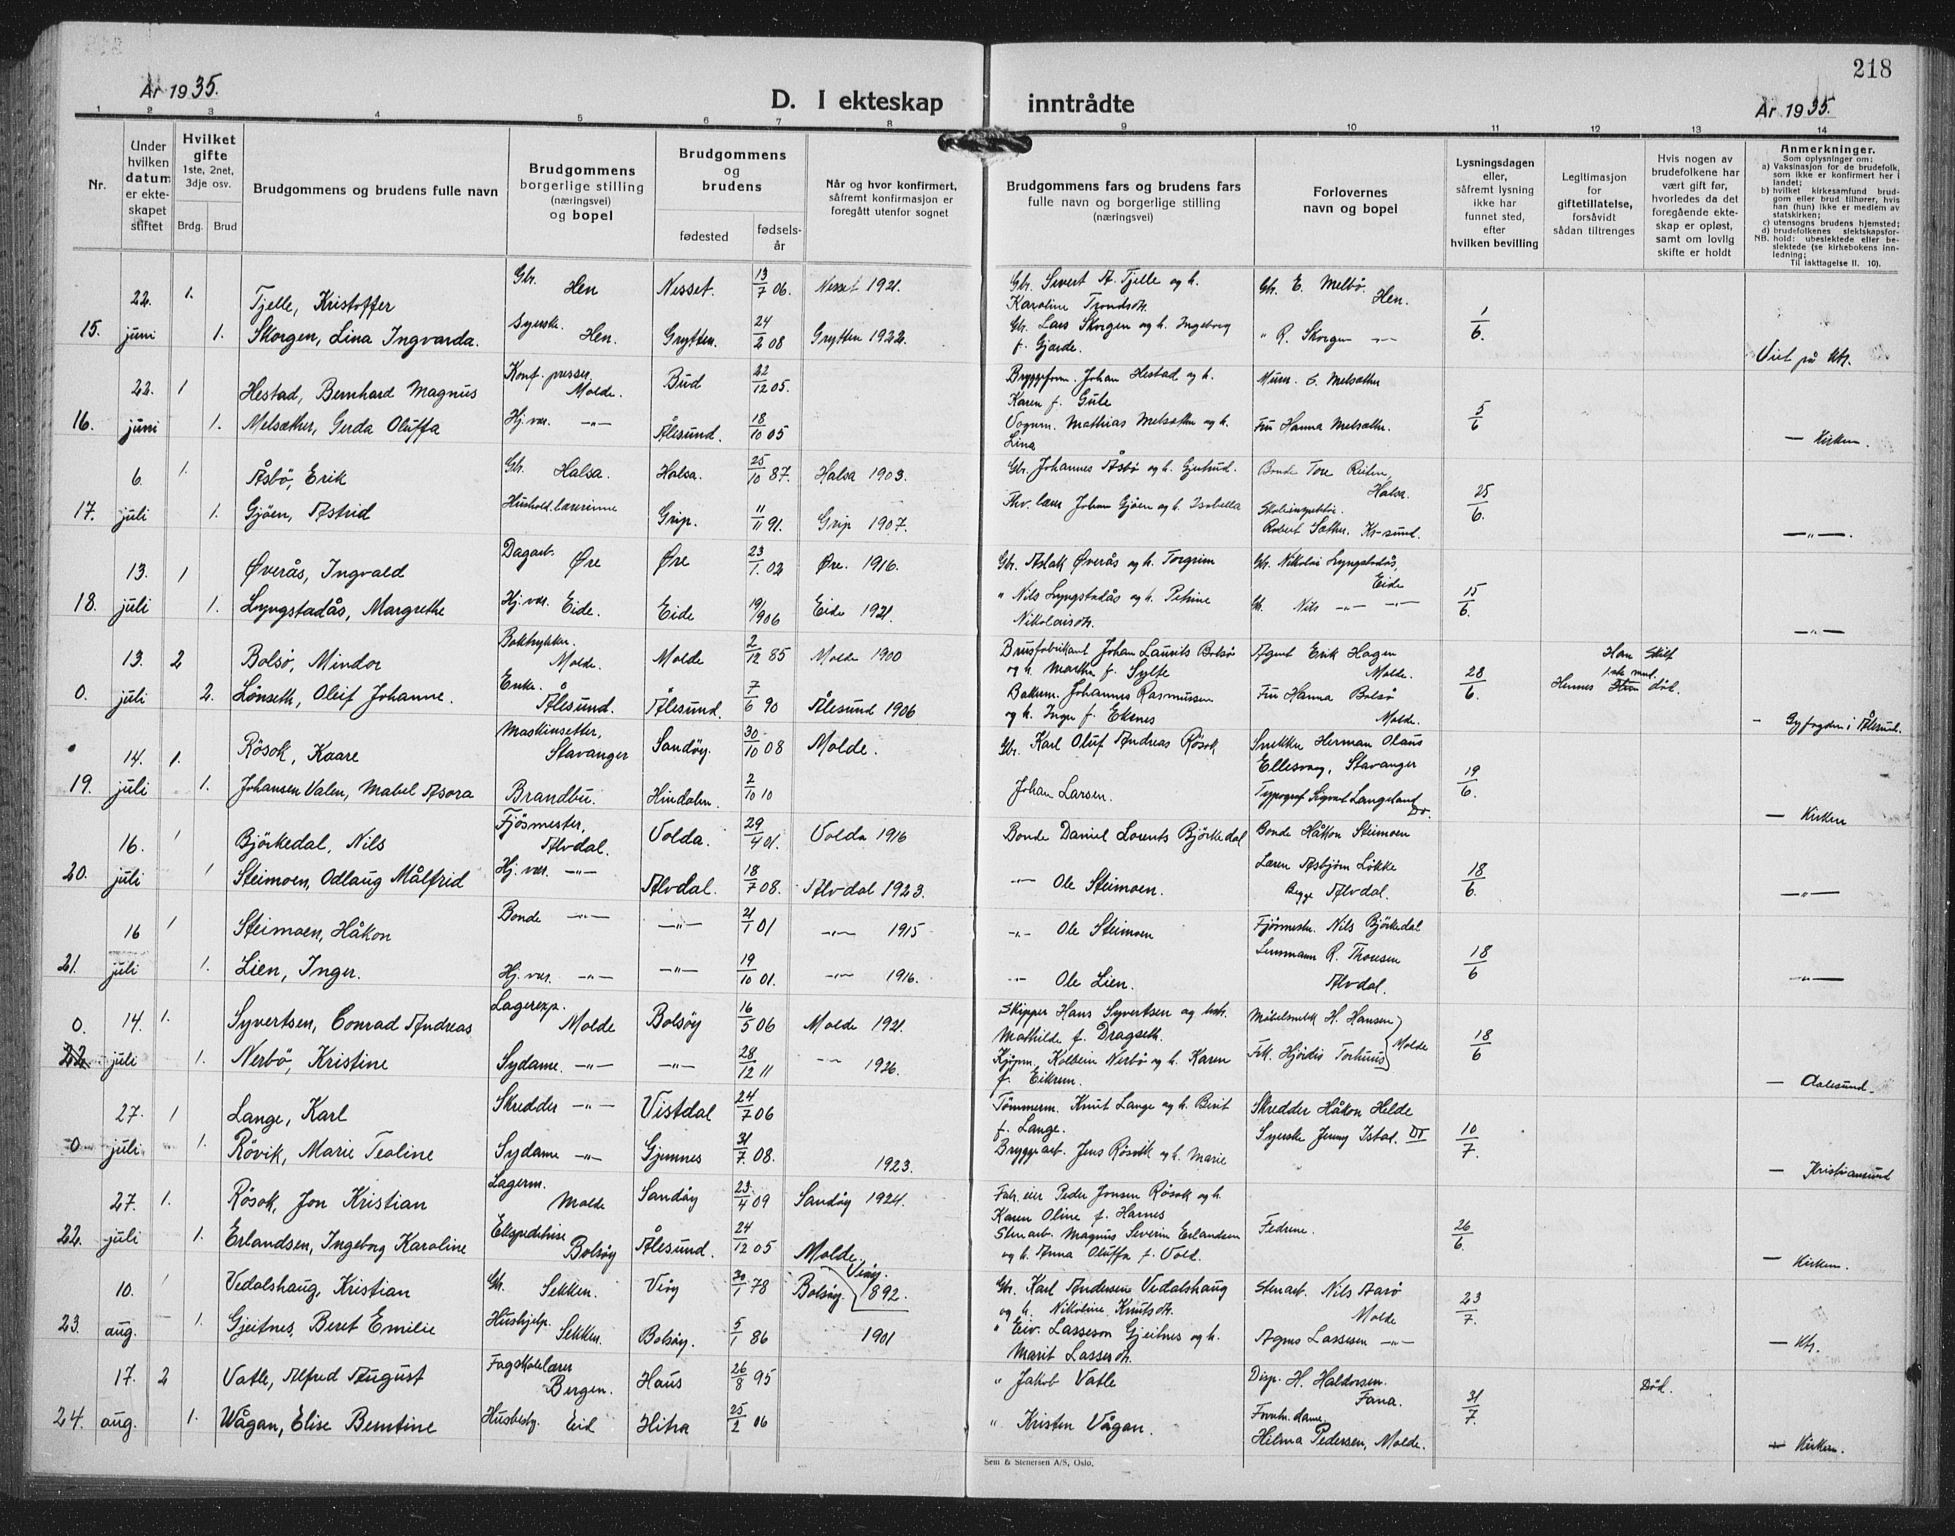 218
År 1935.
D. I ekteskap inntrådte
År 1935.
1 2 3 4 5 6 7 8 9 10 11 12 13 14
Nr.
Under hvilken datum er ekteskapet stiftet
Hvilket gifte 1ste, 2net, 3dje osv.
Brdg. Brud
Brudgommens og brudens fulle navn
Brudgommens borgerlige stilling (næringsvei) og bopel
Brudgommens og brudens
fødested
fødselsår
Når og hvor konfirmert, såfremt konfirmasjon er foregått utenfor sognet
Brudgommens fars og brudens fars fulle navn og borgerlige stilling (næringsvei)
Forlovernes navn og bopel
Lysningsdagen eller, såfremt lysning ikke har funnet sted, efter hvilken bevilling
Legitimasjon for giftetillatelse, forsåvidt sådan tiltrenges
Hvis nogen av brudefolkene har vært gift før, hvorledes da det foregående ekteskap er opløst, samt om lovlig skifte er holdt
Anmerkninger.
Som oplysninger om:
a) Vaksinasjon for de brudefolk, som ikke er konfirmert her i landet;
b) hvilket kirkesamfund brudgom eller brud tilhører, hvis han (hun) ikke er medlem av statskirken;
c) utensogns brudens hjemsted;
d) brudefolkenes slektskapsforhold: ubeslektede eller beslektede (se kirkebokens innledning;
NB.
Til iakttagelse II. 10).
22. 1. Tjelle, Kristoffer Gbr. Hen Nesset. 13/7 06. Nesset 1921. Gbr. Sivert A. Tjelle og h. Karoline Trondsdtr. Gbr. E. Melbø. Hen.
15. juni 1. Skorgen, Lina Ingvarda. Syerske. Hen. Grytten. 24/2 08 Grytten 1922. Gbr. Lars Skorgen og h. Ingeborg f. Gjerde. " R. Skorgen -"- 1/6. Viet på ktr.
22. 1 Hestad, Bernhard Magnus Konf. presser. Molde. Bud 22/12 05. Bryggeform. Johan Hestad og h. Karen f. Gule Murer. E. Melsæther
16. juni 1. Melsæther, Gerda Oluffa Hj. vær. -"- Ålesund. 18/10 05 Vognm. Mathias Melsæther og h. Lina Fru Hanna Melsæther. 5/6 - Kirken.
6. 1. Åsbø, Erik Gbr. Halsa. Halsa. 25/10 87. Halsa 1903. Gbr. Johannes Åsbø og h. Gjertrud. Bonde Tore Reiten, Halsa.
17. juli 1. Gjøen, Astrid Hushold.lærerinne Grip. 11/11 91. Grip 1907. Fhv. lærer Johan Gjøen og h. Isabella Skoleinspektør. Robert Sæther. Kr-sund. 25/6. -"-
13. 1 Øverås, Ingvald Dagarb. Øre Øre 23/1. 02 Øre. 1916. Gbr. Aslak Øverås og h. Torgrim Gbr. Nikolai Lyngstadås, Eide
18. juli 1. Lyngstadås, Margrethe Hj. vær. Eide. Eide 19/9 06 Eide 1921. " Nils Lyngstadås og h. Petrine Nikolaisdtr. Gbr. Nils -"- -"- 15/6. -"-
13. 2 Bolsø, Mindor Boktrykker. Molde. Molde 2/12 85 Molde 1900 Brusfabrikant Johan Laurits Bolsø og h. Marthe f. Sylte Agent Erik Hagen Molde. Han skilt
0. juli 2. Lønseth, Oleif Johanne. Enke. Ålesund. Ålesund. 7/6 90 Ålesund 1906 Bakem. Johannes Rasmussen og h. Inger f. Eknes Fru Hanna Bolsø Molde. 28/6. Hennes 1ste mnd. død. - Byfogden i Ålesund.
14. 1. Røsok, Kaare Maskinsetter, Stavanger Sandøy. 30/10 08 Molde. Gbr. Karl Oluf Andreas Røsok Snekker Herman Olaus Ellesvaag, Stavanger
19. juli 1. Johansen Valen, Mabel Asora Brandbu. Hindalen. 2/10 10 Johan Larsen. Typograf Sigvat Langeland Do. 19/6. - Kirken
16. 1 Bjørkedal, Nils Fjøsmester, Alvdal. Volda. 29/4 01. Volda 1916 Bonde Daniel Lorents Bjørkedal Bonde Håkon Steimoen
20. juli 1 Steimoen, Odlaug Målfrid Hj. vær. -"- Alvdal. 18/7 08. Alvdal 1923. -"- Ole Steimoen. Lærer Asbjørn Løkke Begge Alvdal. 18/6. -"-
16 1 Steimoen, Håkon Bonde -"- -"- 21/1 01 -"- 1915 -"- Ole Steimoen Fjøsmestr. Nils Bjørkedal
21. juli 1. Lien, Inger. Hj. vær. -"- -"- 19/10 01. -"- 1916. -"- Ole Lien. Lensmann R. Thoresen Alvdal. 18/6 -"-
0. 14. 1. Syvertsen, Conrad Andreas Lagerexp. Molde Bolsøy 16/5 06 Molde 1921. Skipper Hans Syvertsen og hstr. Mathilde f. Dragseth. Møbelsnekk H. Hansen Molde
22. juli 1. Nerbø, Kristine Sydame. -"- -"- 28/12 11 -"- 1926. Kjøpm. Kolbein Nerbø og h. Karen f. Eikrem. Frk. Hjørdis Torhuus 18/6 - Aalesund.
27. 1 Lange, Karl Skredder -"- Vistdal 24/7 06 Tømmerm. Knut Lange og h. Berit f. Lange. Skredder Håkon Helde
0 juli 1. Røvik, Marie Tealine Sydame -"- Gjemnes 31/7. 08. 1923. Bryggearb. Jens Røsvik og h. Marie Syerske Jenny Istad. Do 10/7. - Kristiansund
27. 1. Røsok, Jon Kristian Lagerm. Molde Sandøy 23/4 09 Sandøy 1924. Fabr. eier Peder Jonsen Røsok og h. Karen Oline f. Harnes Fedrene.
22. juli 1. Erlandsen, Ingeborg Karoline Ekspeditrise Bolsøy Ålesund. 24/12 05 Molde. Stenarb. Magnus Severin Erlandsen og h. Anna Oluffa f. Vold. 26/6. - Kirken.
10. Vedalshaug, Kristian Gbr. Sekken. Veøy 30/1 78 Bolsøy. Veøy. 1892. Gbr. Karl Andersen Vedalshaug og h. Nikoline Knutsdtr. Stenarb. Nils Aarø Molde
23. aug. 1. Gjeitnes, Beret Emilie Hushjelp. Sekken Bolsøy. 5/1 86 1901 " Eiv. Lasseson Gjeitnes og h. Marit Lassesdtr. Agnes Lassesen -"- 23/7. - ktr.
17. 2 Vatle, Alfred August Fagskolelærer Bergen. Haus 26/8 95 " Jakob Vatle Disp. H. Haldorsen. Fana. Død.
24. aug. 1. Wågan, Elise Berntine Husbesty. Eid Hitra 25/2 06 " Kristen Vågan. Forretn.dame. Hilma Pedersen, Molde. 31/7. - Kirken.
Sem & Stenersen A/S, Oslo.